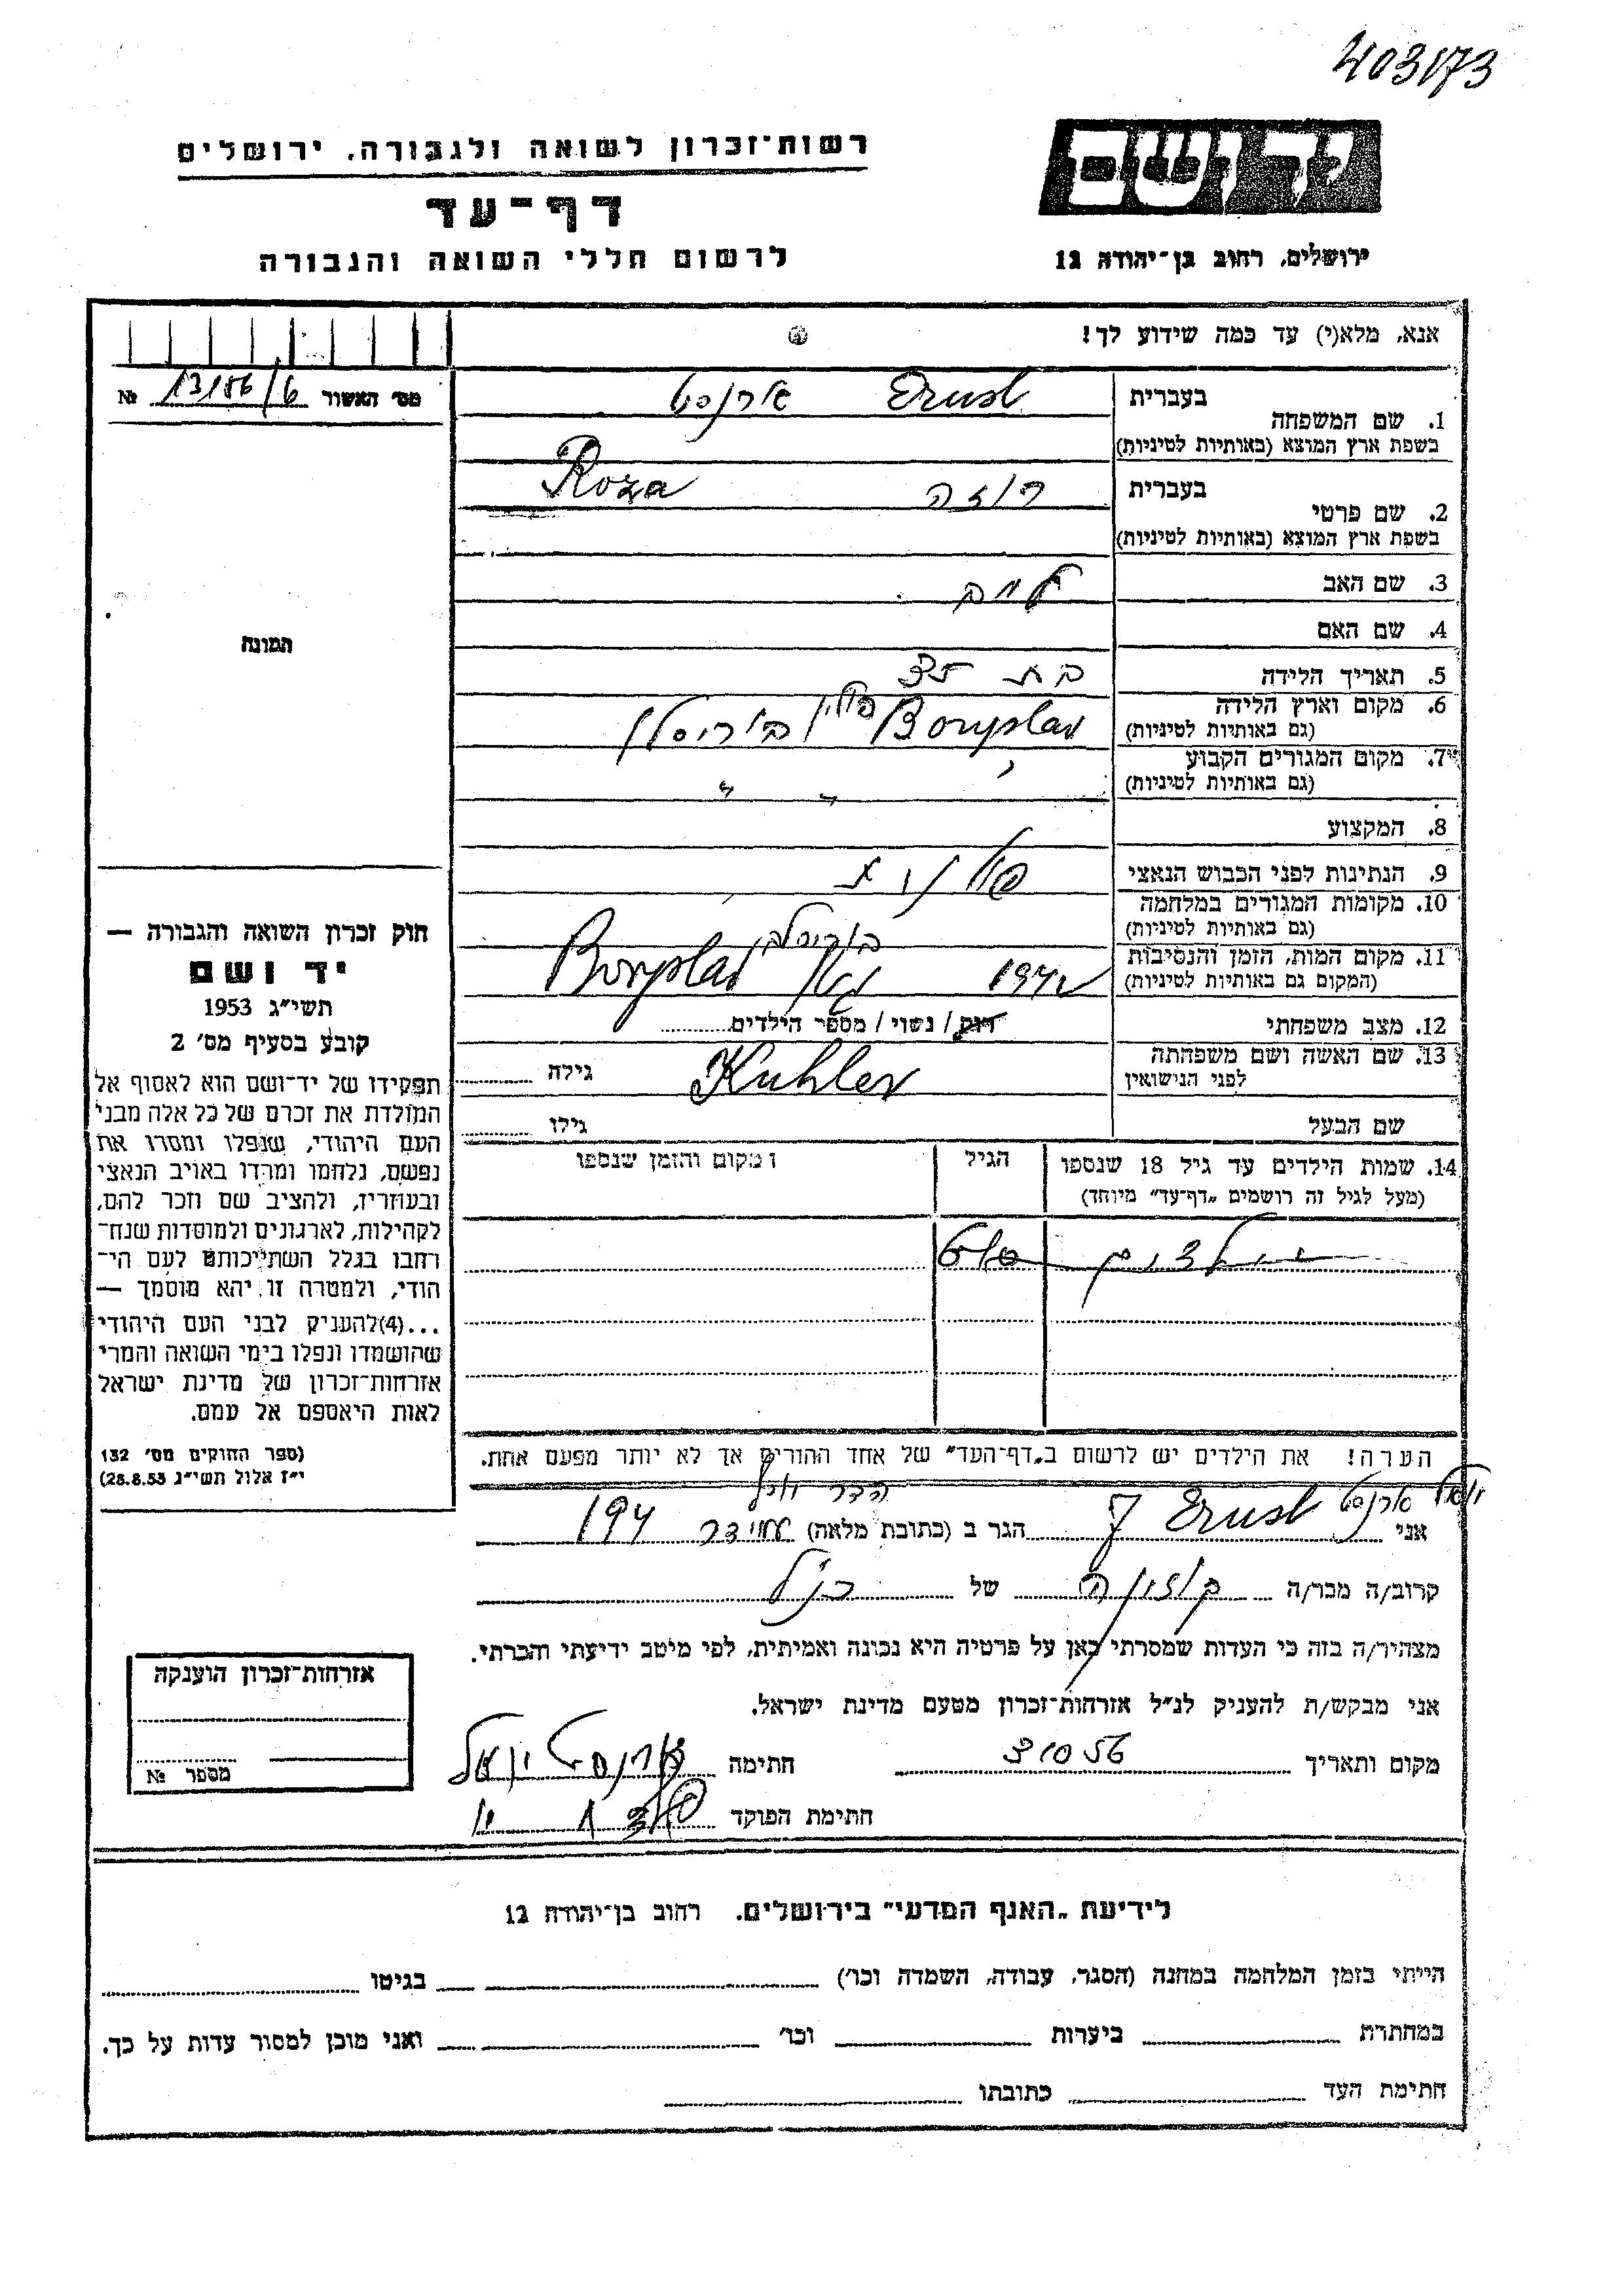 403173
רשות־זכרון לשואה ולגבורה, ירושלים
דף־עד
לרשום חללי השואה והגבורה
יד ושם
ירושלים, רחוב בן־יהודה 12
אנא, מלא(י) עד כמה שידוע לך!
מס׳ האשור 13186/6 №
תמונה
1. שם המשפחה
בעברית ארנסט Ernst
בשפת ארץ המוצא (באותיות לטיניות)
2. שם פרטי
בעברית רוזה Roza
בשפת ארץ המוצא (באותיות לטיניות)
3. שם האב
4. שם האם
5. תאריך הלידה בת 35
6. מקום וארץ הלידה Boryslav פולין בוריסלב
(גם באותיות לטיניות)
7. מקום המגורים הקבוע
(גם באותיות לטיניות) " "
8. המקצוע
9. הנתינות לפני הכבוש הנאצי פולנית
10. מקומות המגורים במלחמה
(גם באותיות לטיניות)
11. מקום המות, הזמן והנסיבות 1942 בוריסלב Boryslav
(המקום גם באותיות לטיניות)
12. מצב משפחתי רוק / נשוי / מספר הילדים
13. שם האשה ושם משפחתה
לפני הנישואין Kuhler גילה
שם הבעל גילו
14. שמות הילדים עד גיל 18 שנספו
(מעל לגיל זה רושמים „דף־עד״ מיוחד)
הגיל
מקום והזמן שנספו
חוק זכרון השואה והגבורה —
יד ושם
תשי״ג 1953
קובע בסעיף מס׳ 2
תפקידו של יד־ושם הוא לאסוף אל
המולדת את זכרם של כל אלה מבני
העם היהודי, שנפלו ומסרו את
נפשם, נלחמו ומרדו באויב הנאצי
ובעוזריו, ולהציב שם וזכר להם,
לקהילות, לארגונים ולמוסדות שנח־
רבו בגלל השתייכותם לעם הי־
הודי, ולמטרה זו יהא מוסמך —
...(4) להעניק לבני העם היהודי
שהושמדו ונפלו בימי השואה והמרי
אזרחות־זכרון של מדינת ישראל
לאות היאספם אל עמם.
(ספר החוקים מס׳ 132
י״ז אלול תשי״ג 28.8.53)
הערה! את הילדים יש לרשום ב„דף־העד״ של אחד ההורים אך לא יותר מפעם אחת.
אני ארנסט Ernst J הגר ב (כתובת מלאה) 194
קרוב/ה מכר/ה של הנ״ל
מצהיר/ה בזה כי העדות שמסרתי כאן על פרטיה היא נכונה ואמיתית, לפי מיטב ידיעתי והכרתי.
אני מבקש/ת להעניק לנ״ל אזרחות־זכרון מטעם מדינת ישראל.
מקום ותאריך 31056 חתימה
חתימת הפוקד
אזרחות־זכרון הוענקה
מספר №
לידיעת „האגף המדעי״ בירושלים, רחוב בן־יהודה 12
הייתי בזמן המלחמה במחנה (הסגר, עבודה, השמדה וכו׳) בגיטו
במחתרת ביערות וכו׳ ואני מוכן למסור עדות על כך.
חתימת העד כתובתו